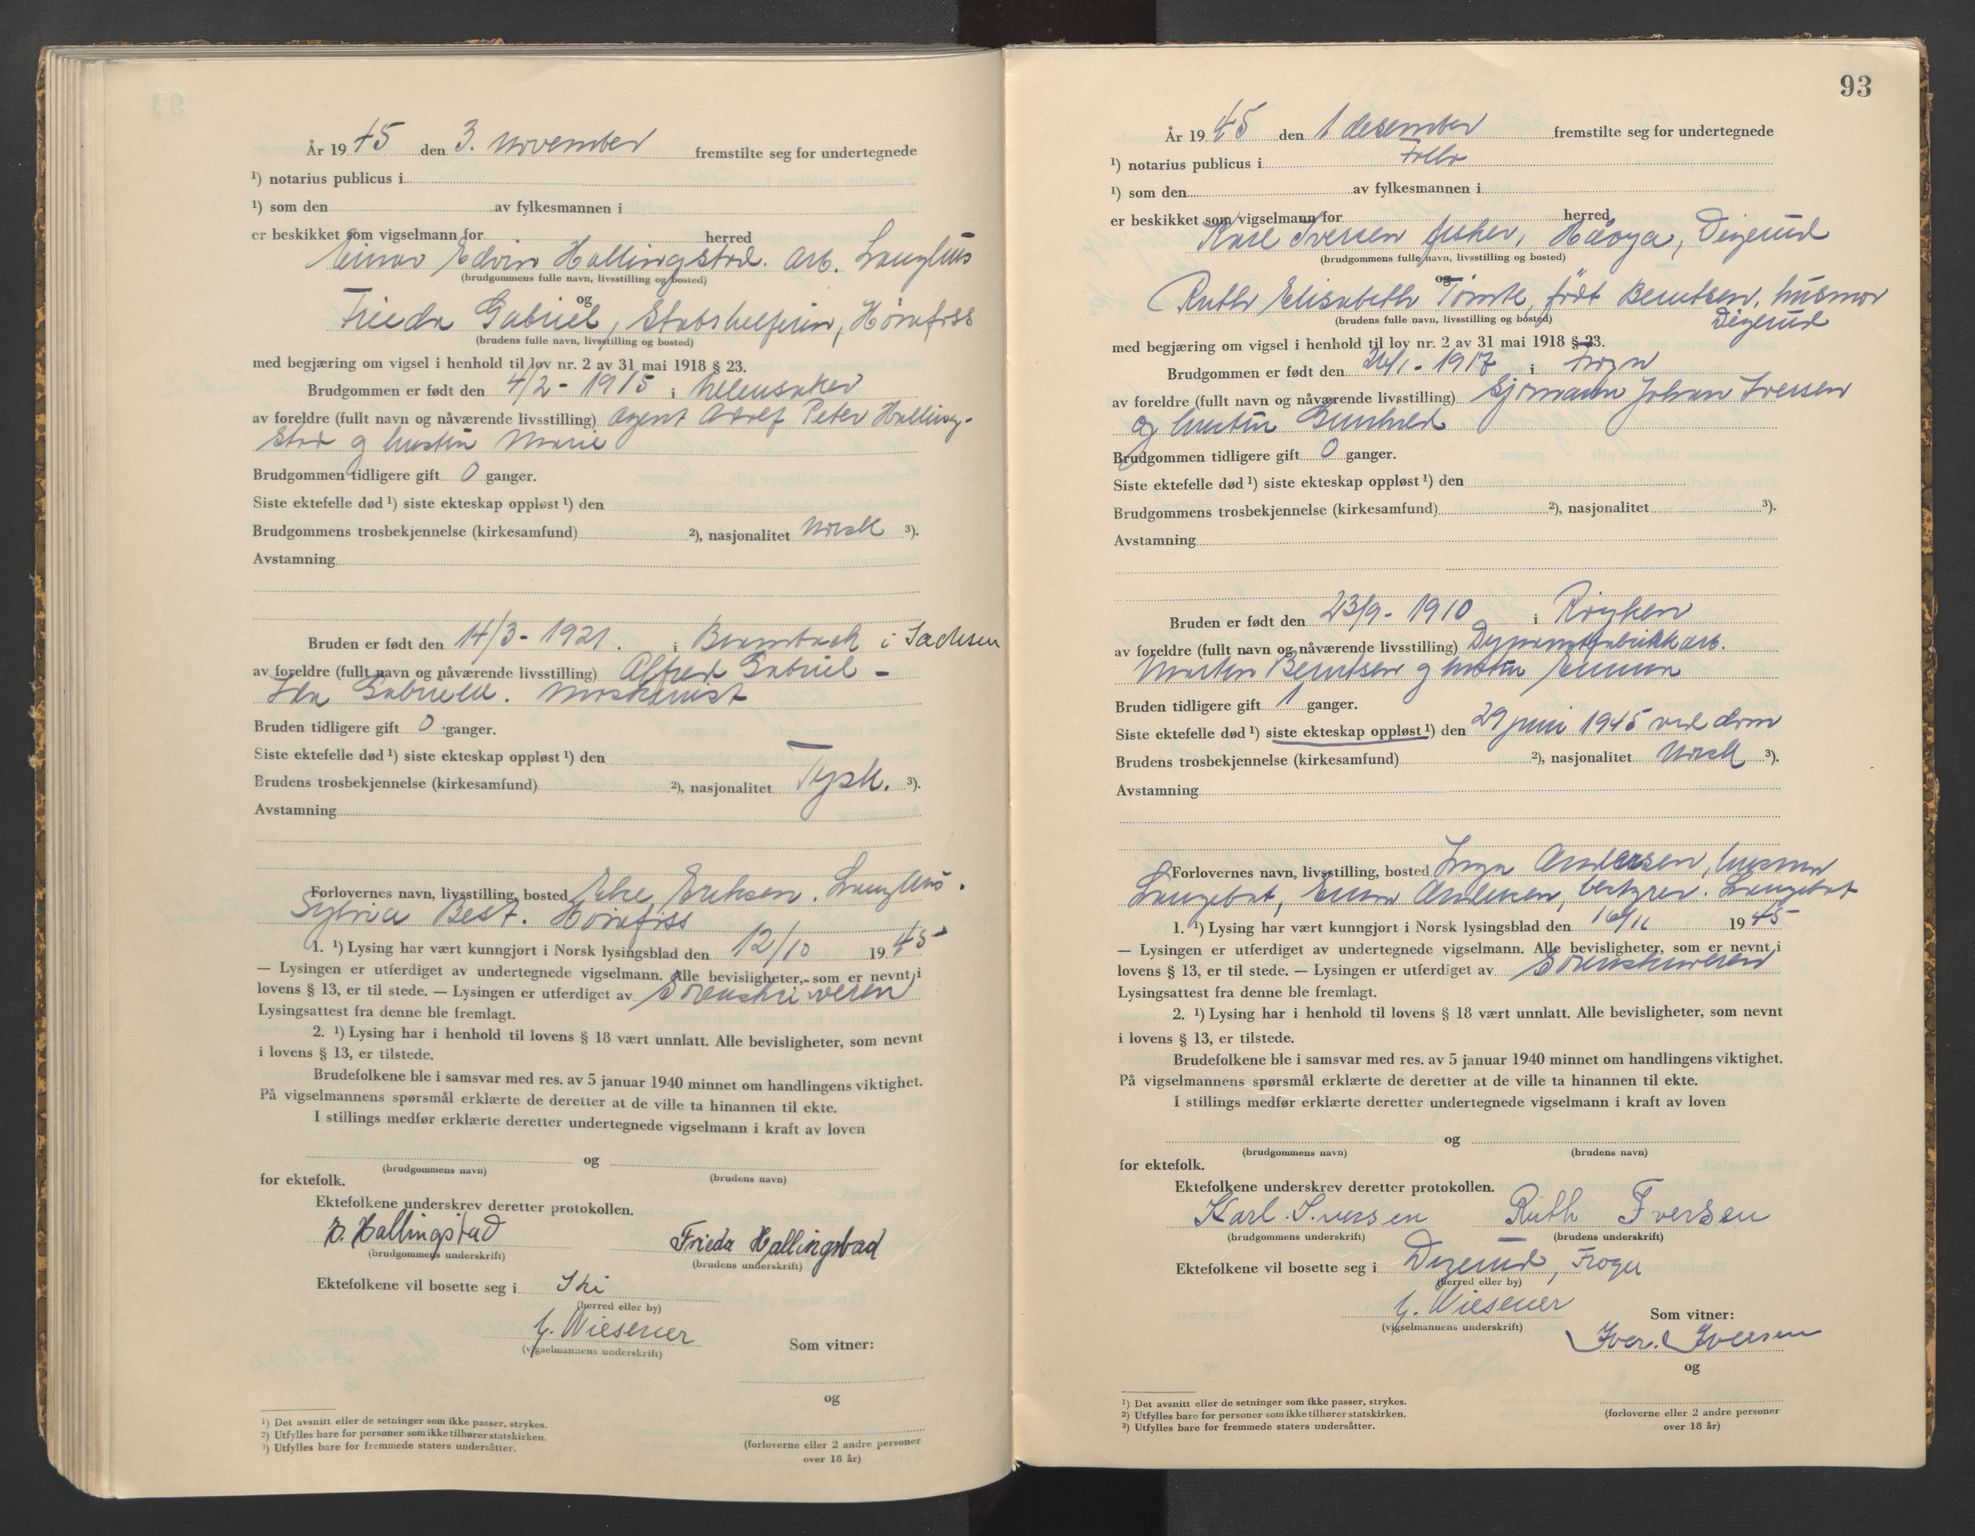 År 1945 den 3. november fremstilte seg for undertegnede
¹) notarius publicus i
¹) som den av fylkesmannen i
er beskikket som vigselmann for herred
Einar Edvin Hallingstad. Arb. Langhus
(brudgommens fulle navn, livsstilling og bosted)
og
Frieda Gabriel, Stabshelferin, Hønefoss
(brudens fulle navn, livsstilling og bosted)
med begjæring om vigsel i henhold til lov nr. 2 av 31 mai 1918 § 23.
Brudgommen er født den 4/2 - 1915 i Ullensaker
av foreldre (fullt navn og nåværende livsstilling) Agent Adolf Peter Halling-
stad og hustru Marie
Brudgommen tidligere gift 0 ganger.
Siste ektefelle død ¹) siste ekteskap oppløst ¹) den
Brudgommens trosbekjennelse (kirkesamfund) ²), nasjonalitet Norsk ³).
Avstamning
Bruden er født den 14/3 - 1921. i Brambach i Sachsen
av foreldre (fullt navn og nåværende livsstilling) Alfred Gabriel -
Ida Gabriel.
Bruden tidligere gift 0 ganger.
Siste ektefelle død ¹) siste ekteskap oppløst ¹) den
Brudens trosbekjennelse (kirkesamfund) ²), nasjonalitet Tysk. ³).
Avstamning
Forlovernes navn, livsstilling, bosted Else Eriksen. Langhus.
Sylvia Best. Hønefoss
1. ¹) Lysing har vært kunngjort i Norsk lysingsblad den 12/10 1945
— Lysingen er utferdiget av undertegnede vigselmann. Alle bevisligheter, som er nevnt i
lovens § 13, er til stede. — Lysingen er utferdiget av Sorenskriveren
Lysingsattest fra denne ble fremlagt.
2. ¹) Lysing har i henhold til lovens § 18 vært unnlatt. Alle bevisligheter, som nevnt
i lovens § 13, er tilstede.
Brudefolkene ble i samsvar med res. av 5 januar 1940 minnet om handlingens viktighet.
På vigselmannens spørsmål erklærte de deretter at de ville ta hinannen til ekte.
I stillings medfør erklærte deretter undertegnede vigselmann i kraft av loven
og
(brudgommens navn) (brudens navn)
for ektefolk.
Ektefolkene underskrev deretter protokollen.
E. Hallingstad Frieda Hallingstad
(brudgommens underskrift) (brudens underskrift)
Ektefolkene vil bosette seg i Ski
(herred eller by)
G. Wiesener
(vigselmannens underskrift) Som vitner:
og
¹) Det avsnitt eller de setninger som ikke passer, strykes.
²) Utfylles bare for personer som ikke tilhører statskirken.
³) Utfylles bare for fremmede staters undersåtter.
(forloverne eller 2 andre personer
over 18 år)
93
År 1945 den 1 desember fremstilte seg for undertegnede
¹) notarius publicus i Follo
¹) som den av fylkesmannen i
er beskikket som vigselmann for herred
Karl Iversen fisker, Håøya, Digerud
(brudgommens fulle navn, livsstilling og bosted)
og
Ruth Elisabeth Tømte, født Berntsen, husmor
(brudens fulle navn, livsstilling og bosted) Digerud
med begjæring om vigsel i henhold til lov nr. 2 av 31 mai 1918 § 23.
Brudgommen er født den 26/1 - 1917 i Frogn
av foreldre (fullt navn og nåværende livsstilling) Sjømann Johan Iversen
og hustru Gunhild
Brudgommen tidligere gift 0 ganger.
Siste ektefelle død ¹) siste ekteskap oppløst ¹) den
Brudgommens trosbekjennelse (kirkesamfund) ²), nasjonalitet ³).
Avstamning
Bruden er født den 23/9 - 1910 i Røyken
av foreldre (fullt navn og nåværende livsstilling) Dynamitfabrikkarb.
Martin Berntsen og hustru Emma
Bruden tidligere gift 1 ganger.
Siste ektefelle død ¹) siste ekteskap oppløst ¹) den 29 juni 1945 ved dom
Brudens trosbekjennelse (kirkesamfund) ²), nasjonalitet Norsk ³).
Avstamning
Forlovernes navn, livsstilling, bosted Inga Andersen, husmor
Langebåt, Einar Andersen, bestyrer. Langebåt
1. ¹) Lysing har vært kunngjort i Norsk lysingsblad den 16/11 1945
— Lysingen er utferdiget av undertegnede vigselmann. Alle bevisligheter, som er nevnt i
lovens § 13, er til stede. — Lysingen er utferdiget av Sorenskriveren
Lysingsattest fra denne ble fremlagt.
2. ¹) Lysing har i henhold til lovens § 18 vært unnlatt. Alle bevisligheter, som nevnt
i lovens § 13, er tilstede.
Brudefolkene ble i samsvar med res. av 5 januar 1940 minnet om handlingens viktighet.
På vigselmannens spørsmål erklærte de deretter at de ville ta hinannen til ekte.
I stillings medfør erklærte deretter undertegnede vigselmann i kraft av loven
og
(brudgommens navn) (brudens navn)
for ektefolk.
Ektefolkene underskrev deretter protokollen.
Karl Iversen Ruth Iversen
(brudgommens underskrift) (brudens underskrift)
Ektefolkene vil bosette seg i Digerud, Frogn
(herred eller by)
G. Wiesener
(vigselmannens underskrift) Som vitner:
Iver. Iversen
og
¹) Det avsnitt eller de setninger som ikke passer, strykes.
²) Utfylles bare for personer som ikke tilhører statskirken.
³) Utfylles bare for fremmede staters undersåtter.
(forloverne eller 2 andre personer
over 18 år)